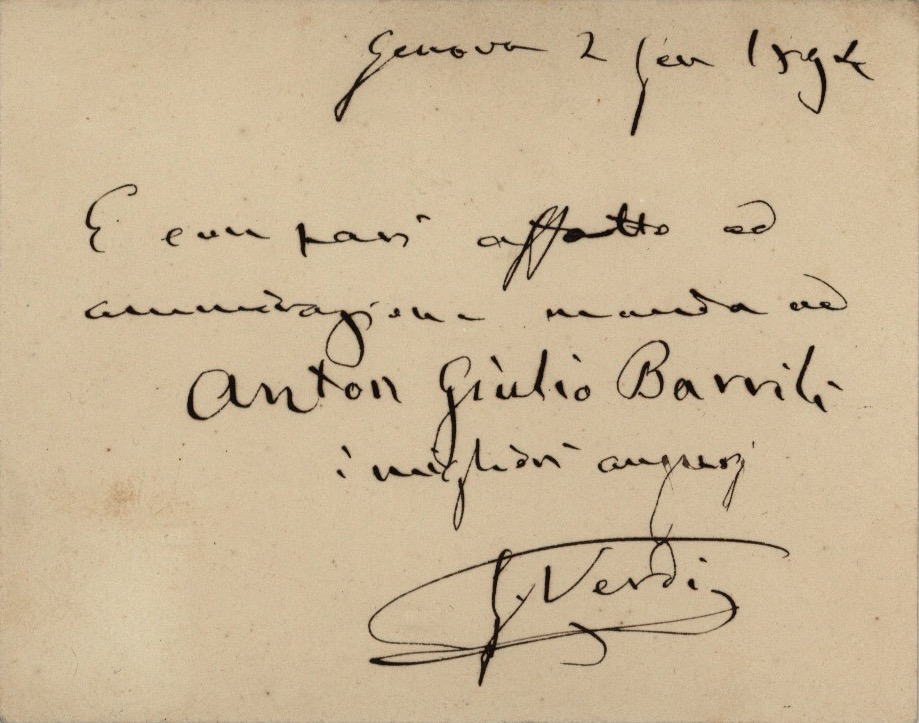 Genova 2 Gen 1894
E con pari affetto ed
ammirazione manda ad
Anton Giulio Barrili
i migliori augurj
G. Verdi